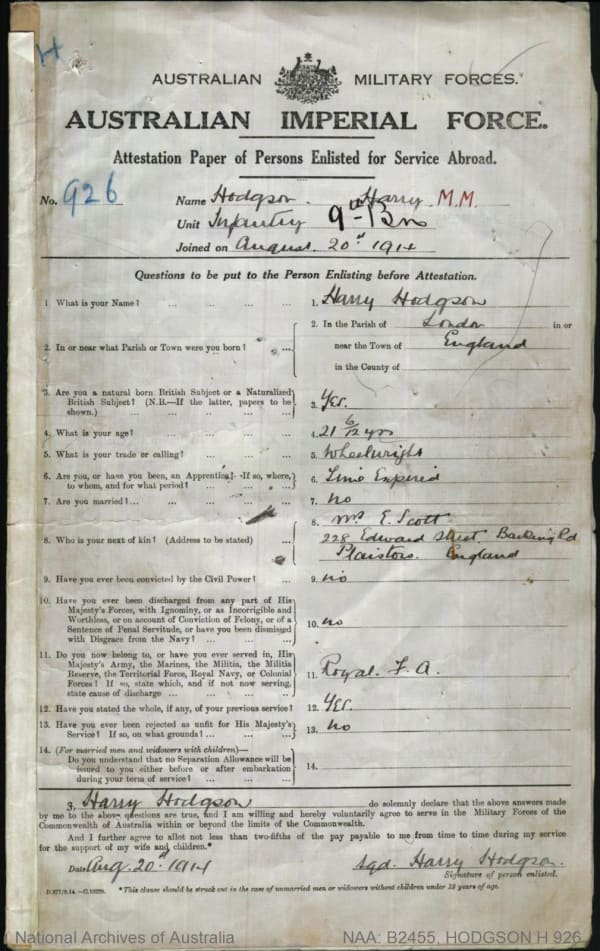 AUSTRALIAN MILITARY FORCES.
AUSTRALIAN IMPERIAL FORCE.
Attestation Paper of Persons Enlisted for Service Abroad.
No. 926
Name Hodgson. Harry M.M.
Unit Infantry 9th Bn
Joined on August. 20th 1914
Questions to be put to the Person Enlisting before Attestation.
1. What is your Name? ... ... ... ... 1. Harry Hodgson
2. In or near what Parish or Town were you born? ... 2. In the Parish of London in or
near the Town of England
in the County of
3. Are you a natural born British Subject or a Naturalized
British Subject? (N.B.—If the latter, papers to be
shown.) ... ... ... ... 3. Yes.
4. What is your age? ... ... ... ... 4. 21 6/12 yrs
5. What is your trade or calling? ... ... ... 5. Wheelwright
6. Are you, or have you been, an Apprentice? If so, where,
to whom, and for what period? ... ... ... 6. Time Expired
7. Are you married? ... ... ... ... 7. no
8. Who is your next of kin? (Address to be stated) ... 8. Mrs E. Scott
228 Edward Street. Barking Rd
Plaistow. England
9. Have you ever been convicted by the Civil Power? ... 9. no
10. Have you ever been discharged from any part of His
Majesty's Forces, with Ignominy, or as Incorrigible and
Worthless, or on account of Conviction of Felony, or of a
Sentence of Penal Servitude, or have you been dismissed
with Disgrace from the Navy? ... ... ... 10. no
11. Do you now belong to, or have you ever served in, His
Majesty's Army, the Marines, the Militia, the Militia
Reserve, the Territorial Force, Royal Navy, or Colonial
Forces? If so, state which, and if not now serving,
state cause of discharge ... ... ... ... 11. Royal. F. A.
12. Have you stated the whole, if any, of your previous service? 12. Yes.
13. Have you ever been rejected as unfit for His Majesty's
Service? If so, on what grounds? ... ... ... 13. No
14. (For married men and widowers with children)—
Do you understand that no Separation Allowance will be
issued to you either before or after embarkation
during your term of service? ... ... ... 14.
I, Harry Hodgson do solemnly declare that the above answers made
by me to the above questions are true, and I am willing and hereby voluntarily agree to serve in the Military Forces of the
Commonwealth of Australia within or beyond the limits of the Commonwealth.
And I further agree to allot not less than two-fifths of the pay payable to me from time to time during my service
for the support of my wife and children.*
Date Aug. 20th 1914 sgd. Harry Hodgson.
Signature of person enlisted.
*This clause should be struck out in the case of unmarried men or widowers without children under 18 years of age.
National Archives of Australia NAA: B2455, HODGSON H 926